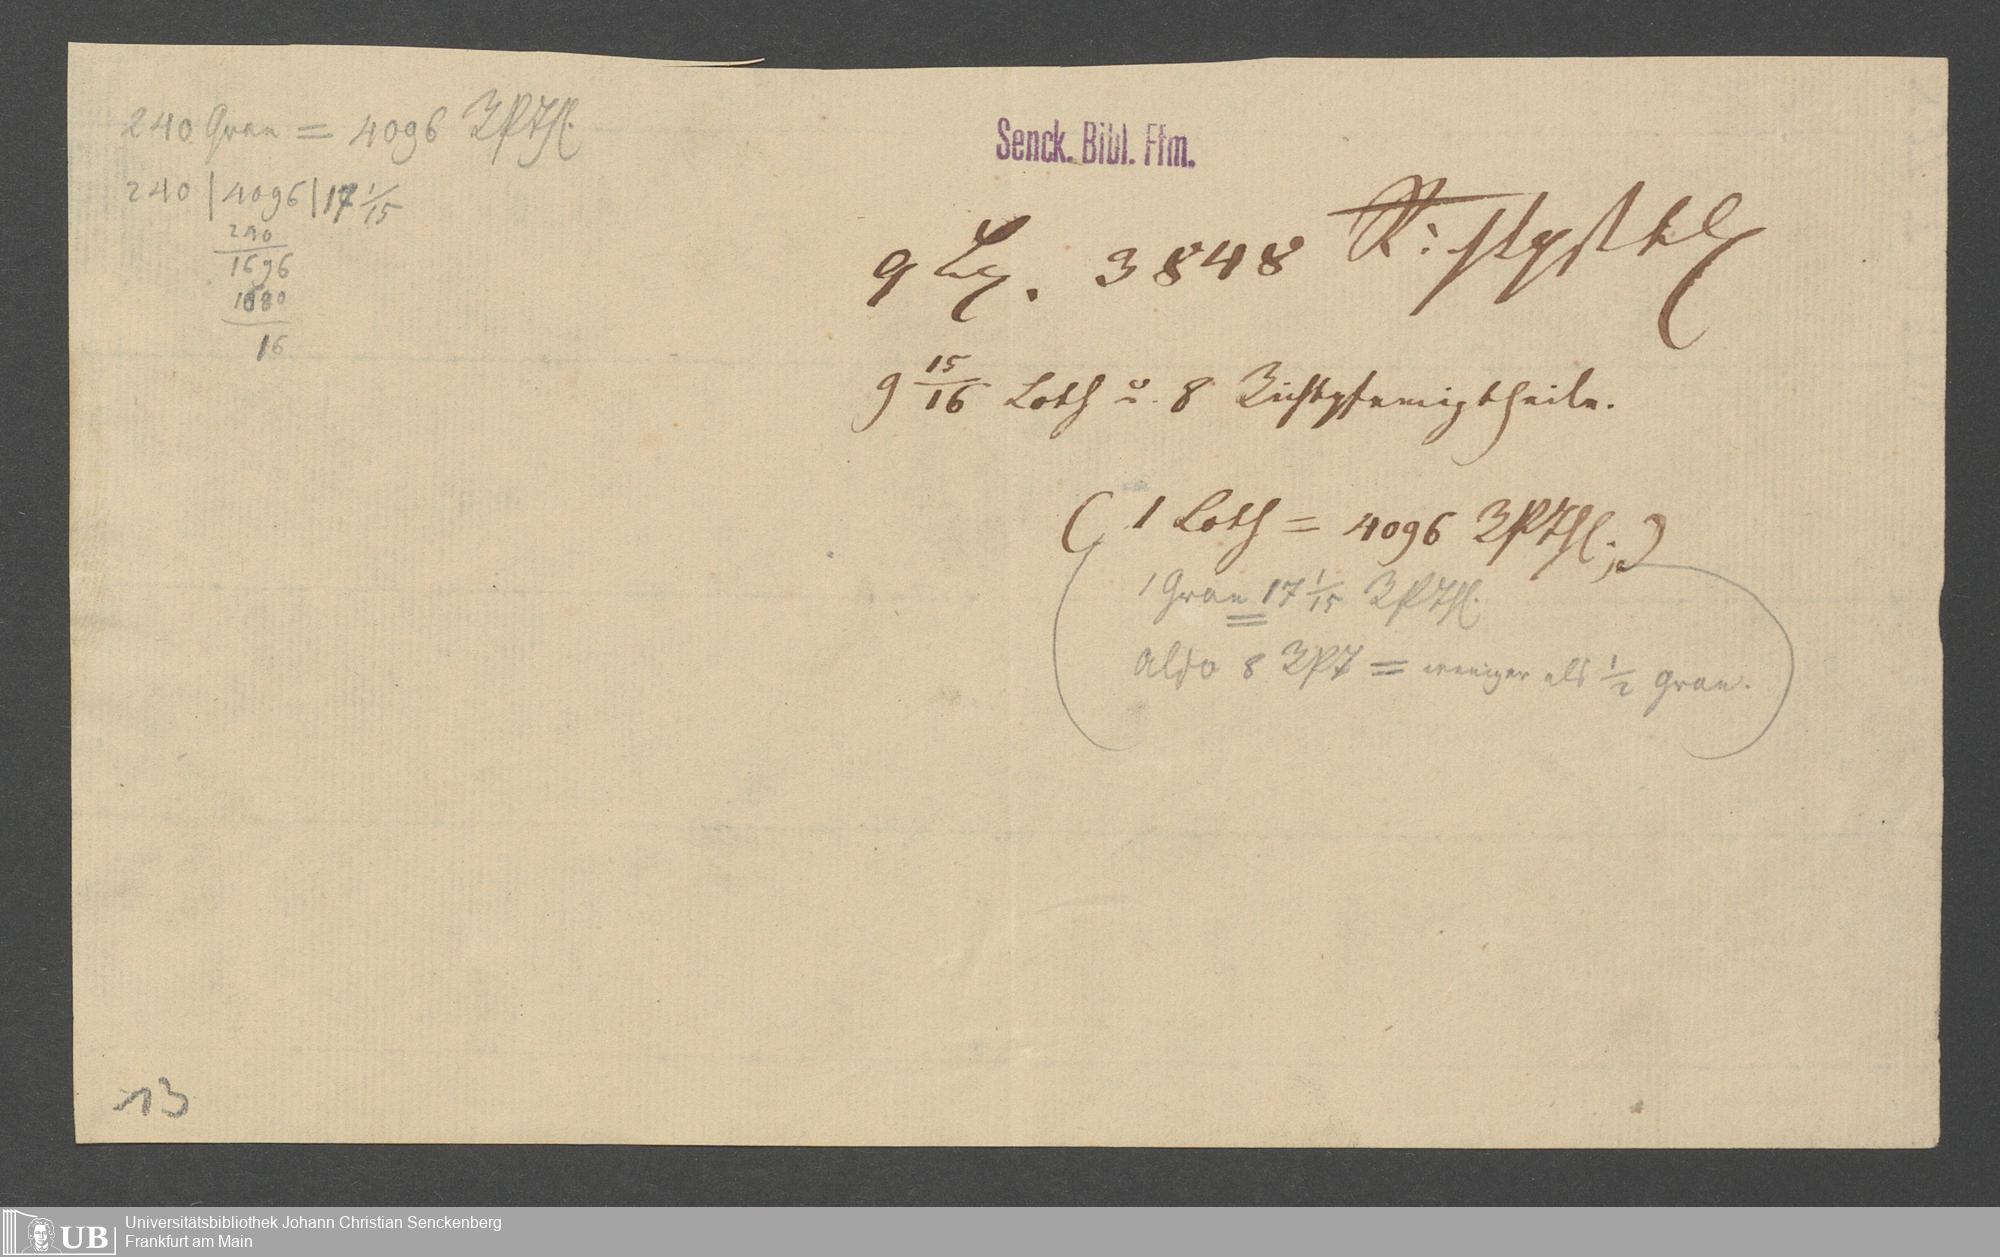 240 Gran = 4096 RPThl.
240 | 4096 | 17 1/15
240
1696
1680
16
Senck. Bibl. Ffm.
9 Lz. 3848
9 15/16 Loth u. 8 Richtpfennigtheile.
( 1 Loth = 4096 RPThl.; )
1 Gran = 17 1/15 RPThl.
also 8 RPT = weniger als 1/2 Gran.
13
UB Universitätsbibliothek Johann Christian Senckenberg
Frankfurt am Main